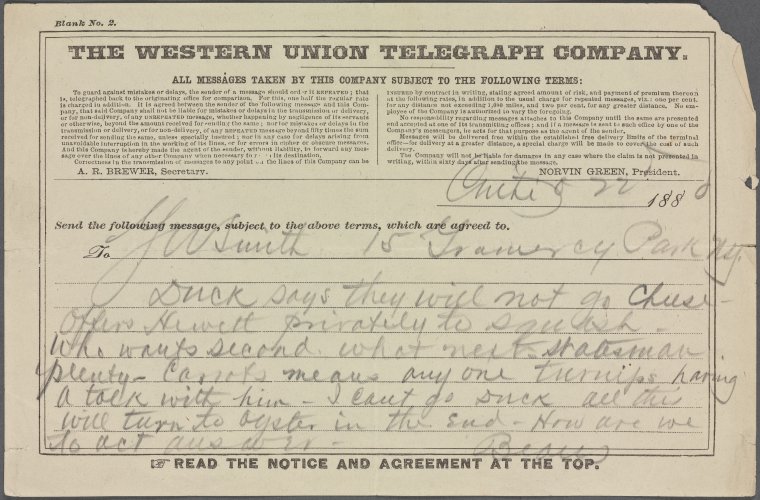 Blank No. 2.
THE WESTERN UNION TELEGRAPH COMPANY.
ALL MESSAGES TAKEN BY THIS COMPANY SUBJECT TO THE FOLLOWING TERMS:
To guard against mistakes or delays, the sender of a message should order it REPEATED; that
is, telegraphed back to the originating office for comparison. For this, one half the regular rate
is charged in addition. It is agreed between the sender of the following message and this Com-
pany, that said Company shall not be liable for mistakes or delays in the transmission or delivery,
or for non-delivery, of any UNREPEATED message, whether happening by negligence of its servants
or otherwise, beyond the amount received for sending the same; nor for mistakes or delays in the
transmission or delivery, or for non-delivery, of any REPEATED message beyond fifty times the sum
received for sending the same, unless specially insured; nor in any case for delays arising from
unavoidable interruption in the working of its lines, or for errors in cipher or obscure messages.
And this Company is hereby made the agent of the sender, without liability, to forward any mes-
sage over the lines of any other Company when necessary to its destination.
Correctness in the transmission of messages to any point on the lines of this Company can be
INSURED by contract in writing, stating agreed amount of risk, and payment of premium thereon
at the following rates, in addition to the usual charge for repeated messages, viz: one per cent.
for any distance not exceeding 1,000 miles, and two per cent. for any greater distance. No em-
ployee of the Company is authorized to vary the foregoing.
No responsibility regarding messages attaches to this Company until the same are presented
and accepted at one of its transmitting offices; and if a message is sent to such office by one of the
Company's messengers, he acts for that purpose as the agent of the sender.
Messages will be delivered free within the established free delivery limits of the terminal
office—for delivery at a greater distance, a special charge will be made to cover the cost of such
delivery.
The Company will not be liable for damages in any case where the claim is not presented in
writing, within sixty days after sending the message.
A. R. BREWER, Secretary.
NORVIN GREEN, President.
22 1880
Send the following message, subject to the above terms, which are agreed to.
To W Smith 15 Gramercy Park NY.
Duck says they will not go Cheese –
offers Hewett privately to squash –
Who wants second. what next. Statesman
plenty – Carrots means any one turnips having
a talk with him – I cant go Duck all this
will turn to oyster in the End – How are we
to act answer –
☞ READ THE NOTICE AND AGREEMENT AT THE TOP.